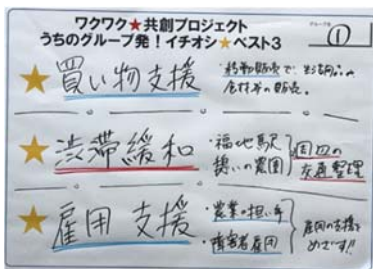 ワクワク★共創プロジェクト
うちのグループ発！イチオシ★ベスト3
グループ名
①
★買い物支援
・移動販売で、生活用品や
食材等の販売。
★渋滞緩和
・福地駅
・憩いの農園
周辺の
交通整理
★雇用支援
・農業の担い手
・障害者雇用
雇用の支援を
めざす!!